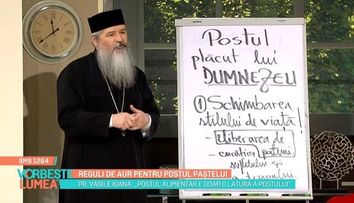 Postul
plăcut lui
DUMNEZEU
① Schimbarea
stilului de viață!
- eliberarea de
SMS 1264
VORBEȘTE
LUMEA
REGULI DE AUR PENTRU POSTUL PAȘTELUI
PR. VASILE IOANA: „POSTUL ALIMENTAR E DOAR O LATURĂ A POSTULUI"